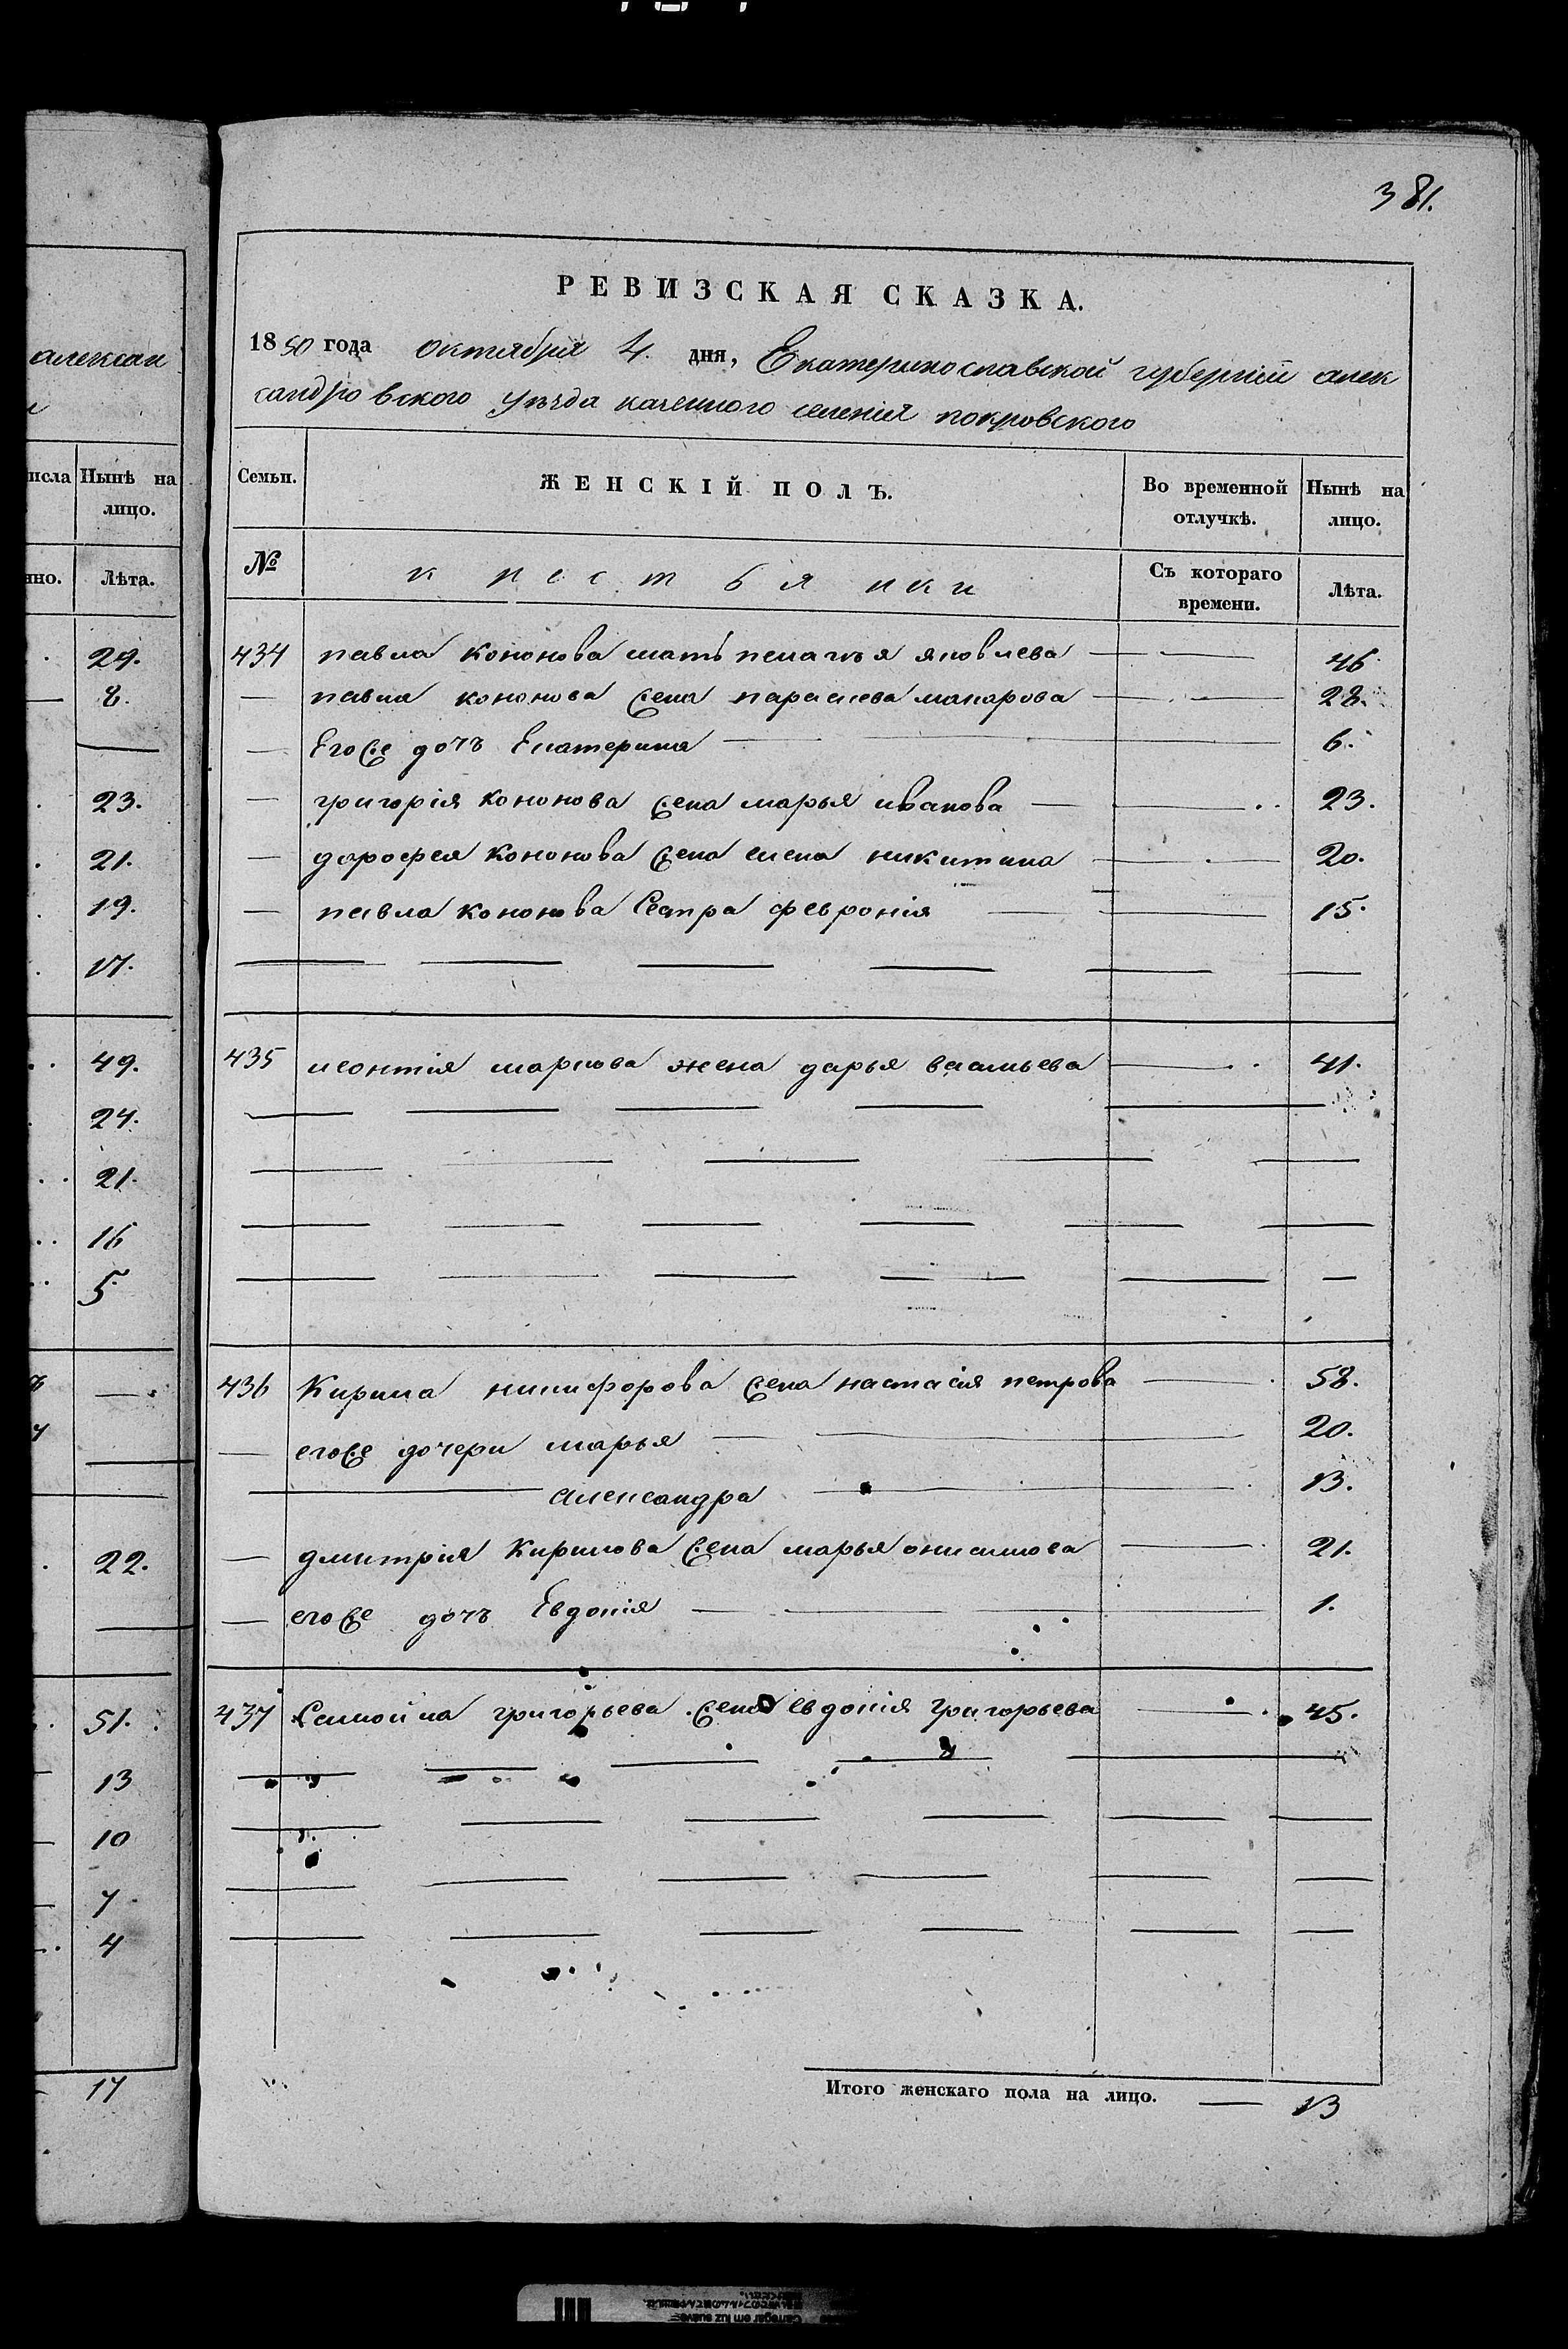 381.
РЕВИЗСКАЯ СКАЗКА.
1850 года октября 4. дня, Екатеринославской губерніи алек
сандровского уезда казенного селенія покровского
Семьи. ЖЕНСКІЙ ПОЛЪ. Во временной отлучкѣ. Нынѣ на лицо.
№ крестьянки Съ котораго времени. Лѣта.
434 павла кононова мать пелагъя яковлева 46.
павла кононова жена параскева макарова 28.
Егоже дочь Екатерина 6.
григорія кононова жена марья иванова 23.
дорофея кононова жена елена никитина 20.
павла кононова Сестра февронія 15.
435 леонтія маркова жена дарья васильева 41.
436 Кирила никифорова жена настасія петрова 58.
егоже дочери марья 20.
александра 13.
дмитрія Кирилова жена марья онисимова 21.
егоже дочь Евдокія 1.
437 Самойла григорьева жена евдокія григорьева 45.
Итого женскаго пола на лицо. 13
алексан
исла Нынѣ на лицо.
нно. Лѣта.
29.
8.
23.
21.
19.
17.
49.
24.
21.
16
5.
22.
51.
13
10
7.
4
17